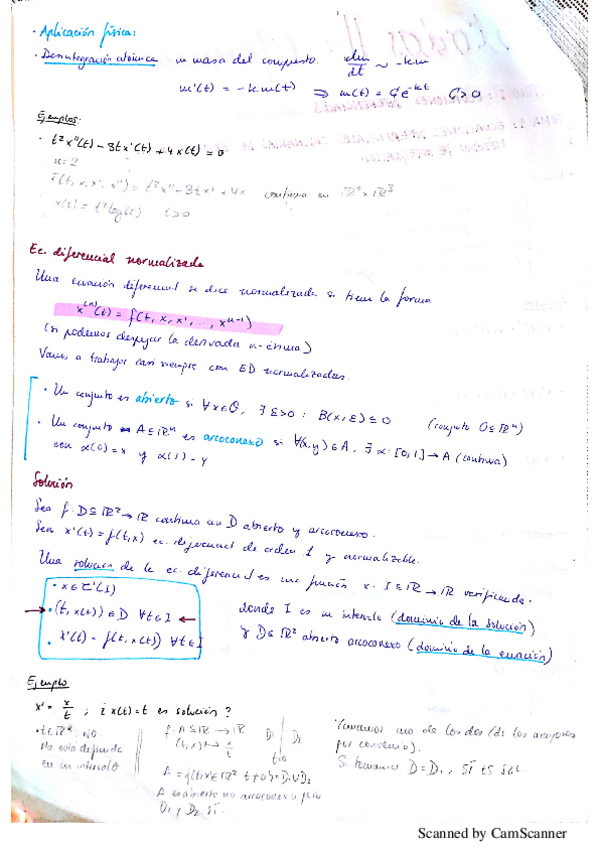 · Aplicación física:
· Desintegración atómica m masa del compuesto. dm/dt ~ -km
m'(t) = -km(t) ⇒ m(t) = Ce^-kt C>0
Ejemplos:
· t²x''(t) - 3tx'(t) + 4x(t) = 0
n=2
F(t, x, x', x'') = t²x'' - 3tx' + 4x continua en
x(t) = t² log(t) t>0
Ec. diferencial normalizada
Una ecuación diferencial se dice normalizada si tiene la forma
x^(n)(t) = f(t, x, x', ..., x^n-1)
(si podemos despejar la derivada n-ésima)
Vamos a trabajar casi siempre con ED normalizadas.
· Un conjunto es abierto si ∀x∈O, ∃ε>0 : B(x,ε) ⊆ O (conjunto O⊆ℝⁿ)
· Un conjunto A⊆ℝⁿ es arcoconexo si ∀(x,y)∈A, ∃ α:[0,1]→A (continua)
con α(0)=x y α(1)=y
Solución
Sea f: D⊆ℝ²→ℝ continua en D abierto y arcoconexo.
Sea x'(t) = f(t,x) ec. diferencial de orden 1 y normalizable.
Una solución de la ec. diferencial es una función x: I⊆ℝ→ℝ verificando:
· x∈C'(I)
→ · (t, x(t)) ∈ D ∀t∈I ←
· x'(t) = f(t, x(t)) ∀t∈I
donde I es un intervalo (dominio de la solución)
y D⊆ℝ² abierto arcoconexo (dominio de la ecuación)
Ejemplo
x' = x/t ; ¿x(t)=t es solución?
No está definida
en un intervalo
(t,x) ↦ x/t
D₁ D₂
t=0
A es abierto no arcoconexo pero
D₁ y D₂ sí.
Tomamos uno de los dos (de los mayores
por convenio).
Si tomamos D=D₁, SÍ es sol.
Scanned by CamScanner